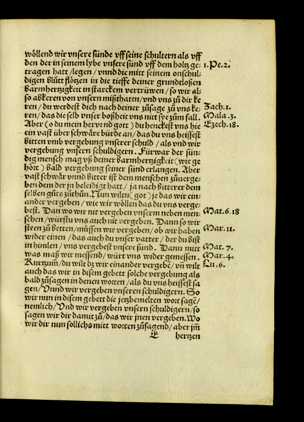 wöllend wir unsere sünde uff seine schultern als uff
den der in seinem lybe unsere sünd uff dem holtz ge: 1. Pe. 2.
tragen hatt / legen / unnd die mitt seinem onschul-
digen blůt flötzen in die tieffe deiner grundtlosen
barmhertzigkeit in starckem vertrüwen / so wir al
so abkeren von unsern mißthaten / und uns zů dir ke
ren / du werdest dich nach deiner zůsage zů uns ke- Zach. 1.
ren / das dc selb unser boßheit uns nit sye zum fall. Mala. 3.
Aber (o du mein herr und gott) du henckest uns hie Ezech. 18.
ein vast über schwäre bürde an / das du uns heissest
bitten umb vergebung unserer schuld / als und wir
vergebung unsern schuldigern. Fürwar der sün-
dig mensch mag uß deiner barmhertzigkeit (wie ge
hört) bald vergebung seiner sünd erlangen. Aber
vast schwär unnd bitter ist dem menschen zůuerge-
ben dem der jn beleidigt hatt / ja nach bitterer den
selben gůts zethůn. Nun wilen (got) je das wir ein-
ander vergeben / wie wir wöllen das du uns verge-
best. Dan wo wir nit vergeben unseren neben men- Mat. 6. 18
schen / würstu uns auch nit vergeben. Dann so wir
steen zů betten / müssen wir vergeben / ob wir haben Mar. 11.
wider einen / das auch du unser vatter / der du bist
in himlen / uns vergebest unsere sünd. Dann mitt Mat. 7.
was maß wir messend / würt uns wider gemessen. Mar. 4.
Kurtzum / du wilt dz wir einander vergebē / uñ wile Lu. 6.
auch das wir in disem gebett solche vergebung als
bald zůsagen in denen worten / als du uns heissest sa
gen / Unnd wir vergeben unseren schuldigern. So
wir nun in disem gebett die jetzbemelten wort sagē /
nemlich / Und wir vergeben unsern schuldigern / so
sagen wir dir damit zů / das wir jnen vergeben. Wo
wir dir nun sollichs mitt worten zůsagend / aber im
hertzen